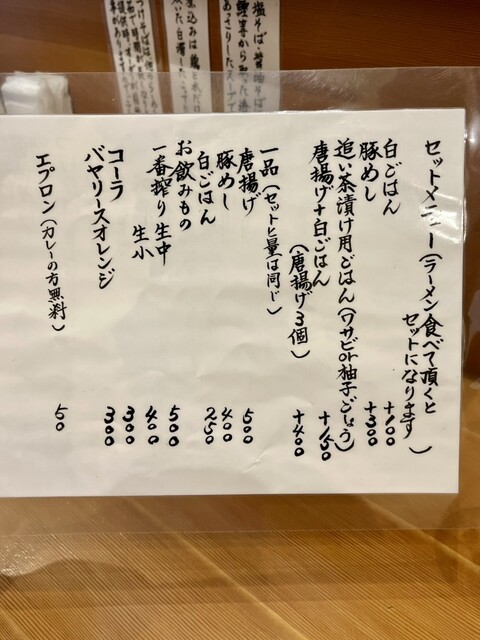 セットメニュー(ラーメン食べて頂くと
セットになります)
白ごはん +100
豚めし +300
追い茶漬け用ごはん(ワサビor柚子ごしょう) +150
唐揚げ+白ごはん
(唐揚げ3個) +400
一品(セットと量は同じ)
唐揚げ 500
豚めし 400
白ごはん 250
お飲みもの
一番搾り 生中 500
生小 400
コーラ 300
バヤリースオレンジ 300
エプロン(カレーの方無料) 50
塩そば・醤油そば
あっさりしたスープで